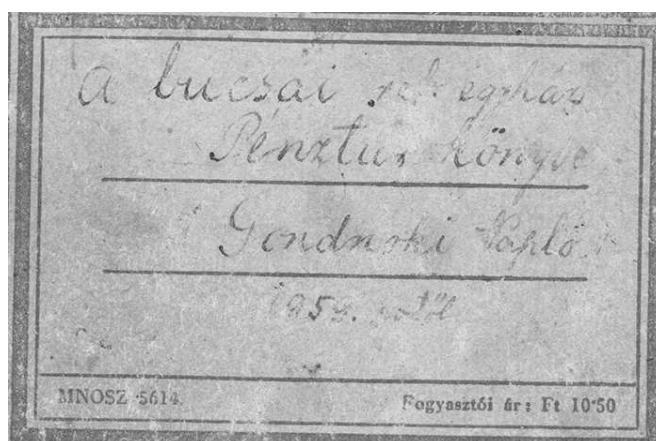 A bucsai ref. egyház
Pénztár könyve
Gondnoki Napló
195
MNOSZ 5614.
Fogyasztói ár: Ft 10·50